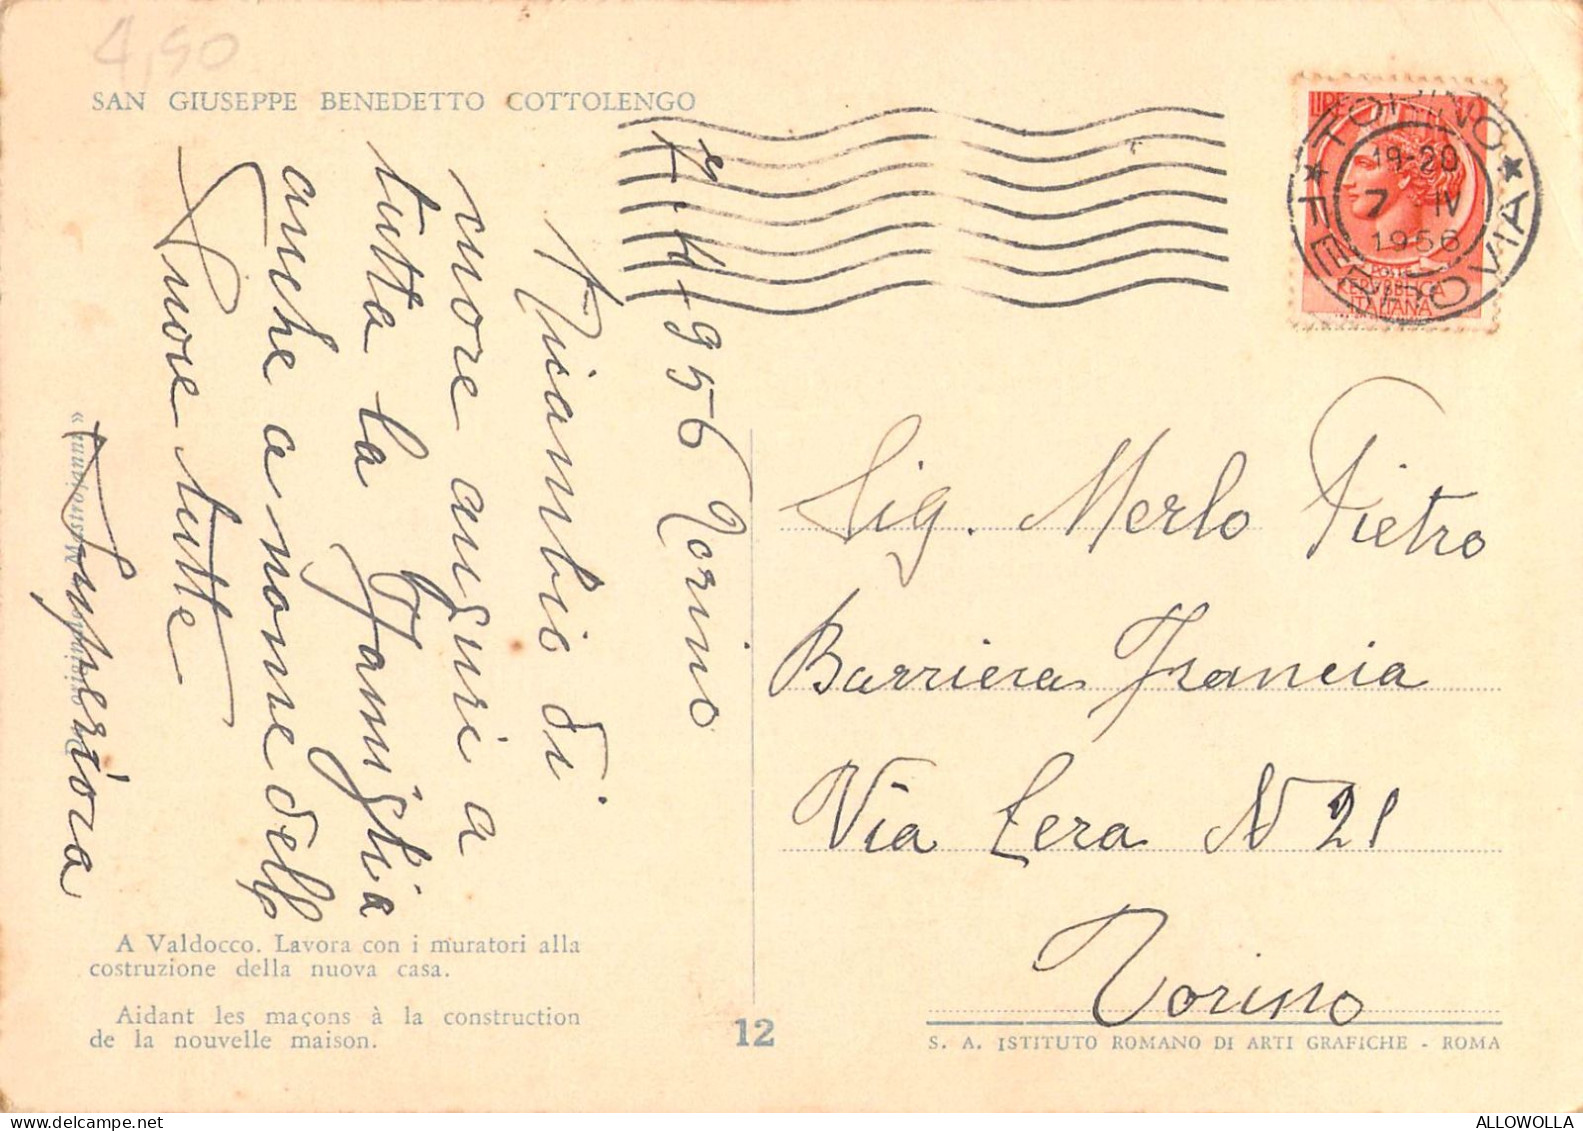 4,50
SAN GIUSEPPE BENEDETTO COTTOLENGO
7-4-956 Torino
Ricambio di
cuore auguri a
tutta la Famiglia
anche a nome delle
Suore tutte
Superiora
A Valdocco. Lavora con i muratori alla
costruzione della nuova casa.
Aidant les maçons à la construction
de la nouvelle maison.
12
LIRE
POSTE
REPVBBLICA
ITALIANA
TORINO
FERROVIA
19-20
7 IV
1956
Sig. Merlo Pietro
Barriera Francia
Via Lera N 21
Torino
S. A. ISTITUTO ROMANO DI ARTI GRAFICHE - ROMA
ALLOWOLLA